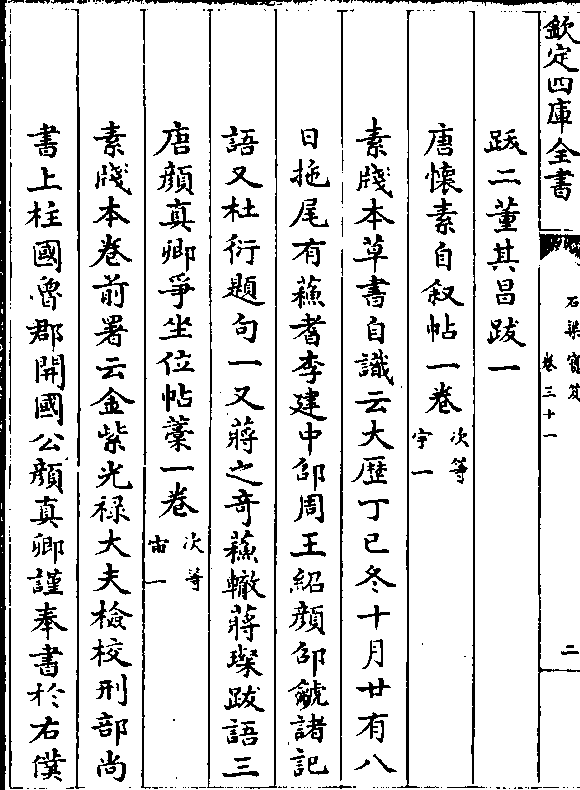 欽定四庫全書
石渠寳笈
卷三十一
二
跋二董其昌跋一
唐懷素自叙帖一卷 次等宇一
素牋本草書自識云大歷丁巳冬十月廿有八
日拖尾有蘓耆李建中邵周王紹顔邵䚦諸記
語又杜衍題句一又蔣之竒蘓轍蔣璨跋語三
唐顔真卿爭坐位帖藁一卷 次等宙一
素牋本卷前署云金紫光禄大夫檢校刑部尚
書上柱國魯郡開國公顔真卿謹奉書於右僕